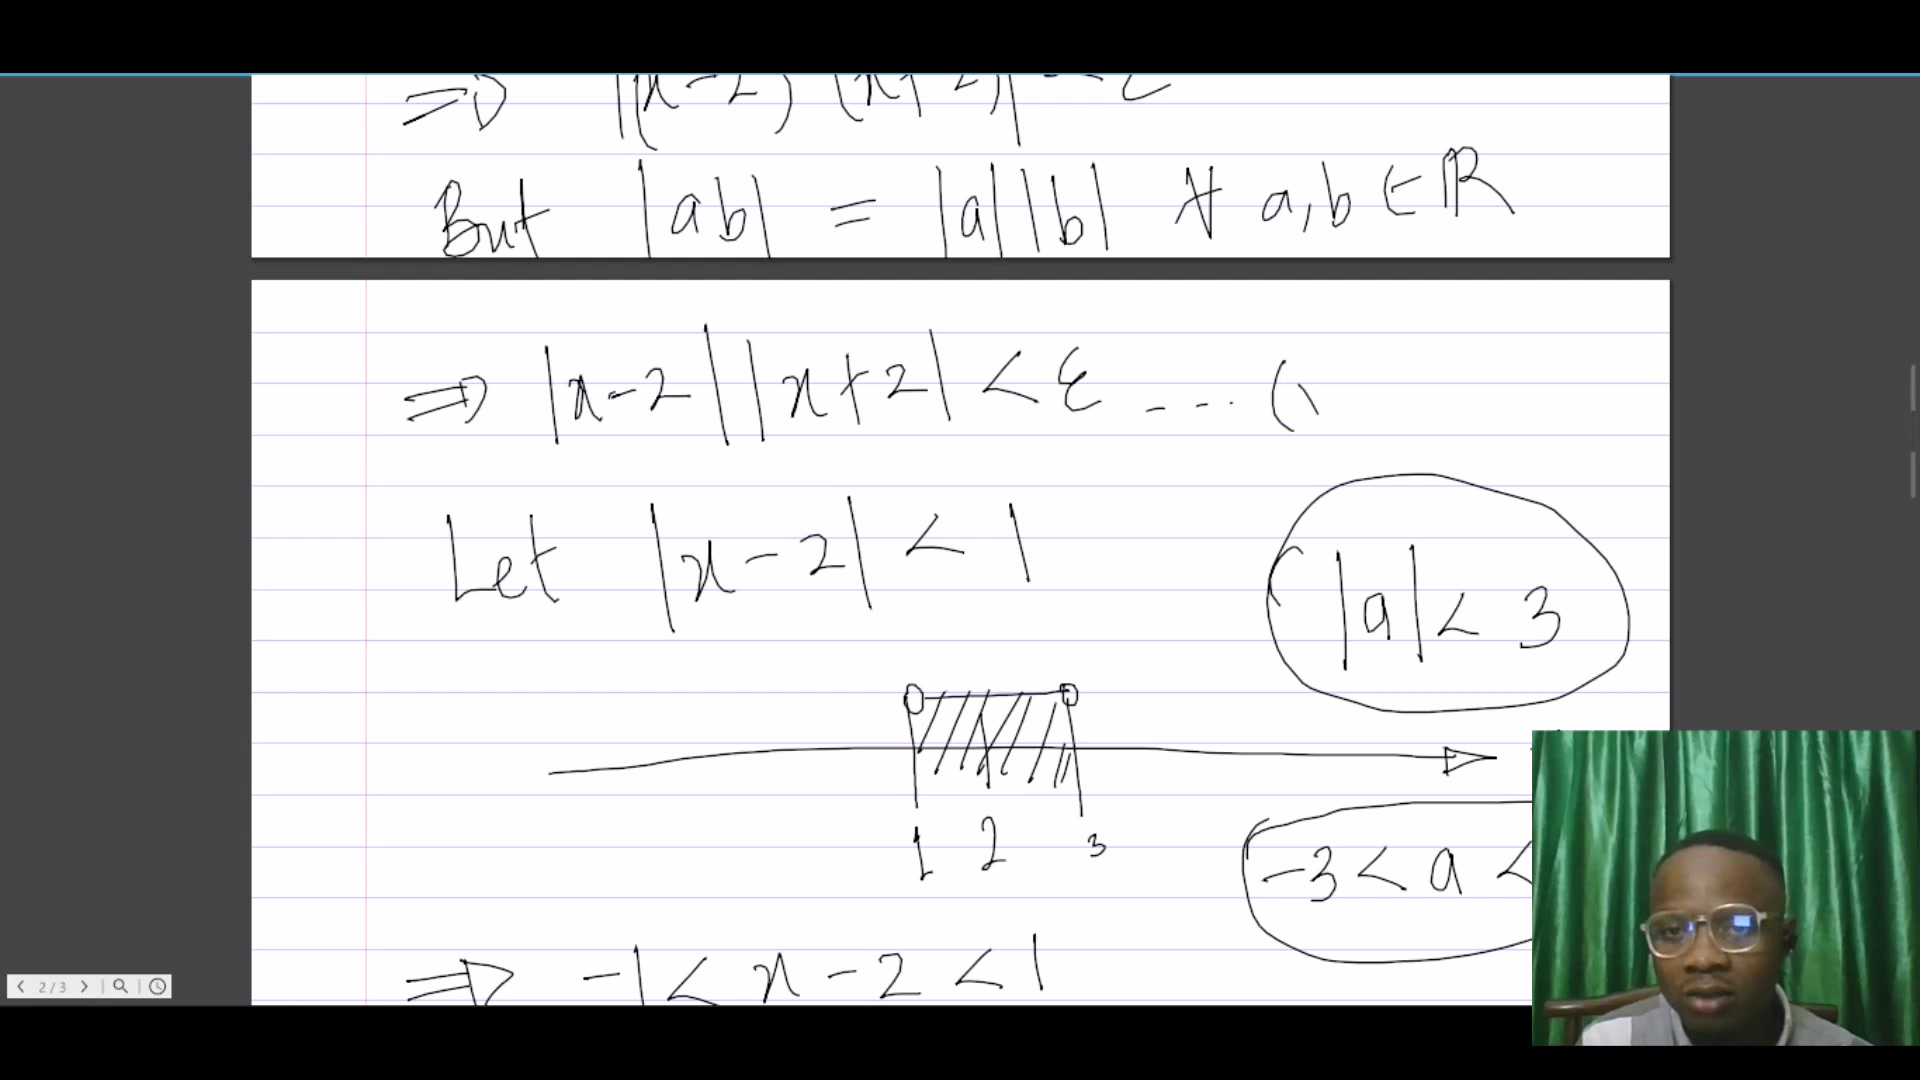 ⇒ |(x-2)(x+2)| < ε
But |ab| = |a||b| ∀ a,b ∈ ℝ
⇒ |x-2||x+2| < ε ---- (
Let |x-2| < 1
|a| < 3
1 2 3
-3 < a <
⇒ -1 < x-2 < 1
2/3